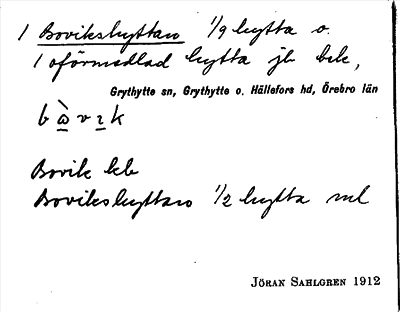 1 Bovikshyttan 1/9 hytta o.
1 oförmedlad hytta jb bek,
Grythytte sn, Grythytte o. Hällefors hd, Örebro län
b ѽ v ɪ k
Bovik kb
Bovikshyttan 1/2 hytta ml
JÖRAN SAHLGREN 1912